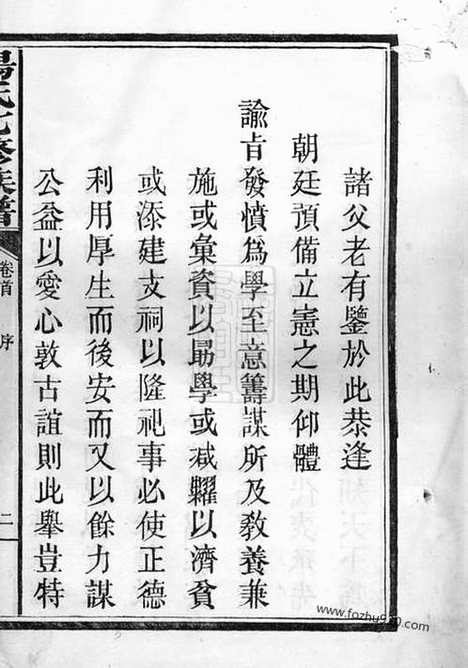 諸父老有鑒於此恭逢
朝廷預備立憲之期仰體
諭旨發憤為學至意籌謀所及教養兼
施或彙資以勗學或減糶以濟貧
或添建支祠以隆祀事必使正德
利用厚生而後安而又以餘力謀
公益以愛心敦古誼則此舉豈特
楊氏七修族譜
卷首
序
二
www.fozhy920.com